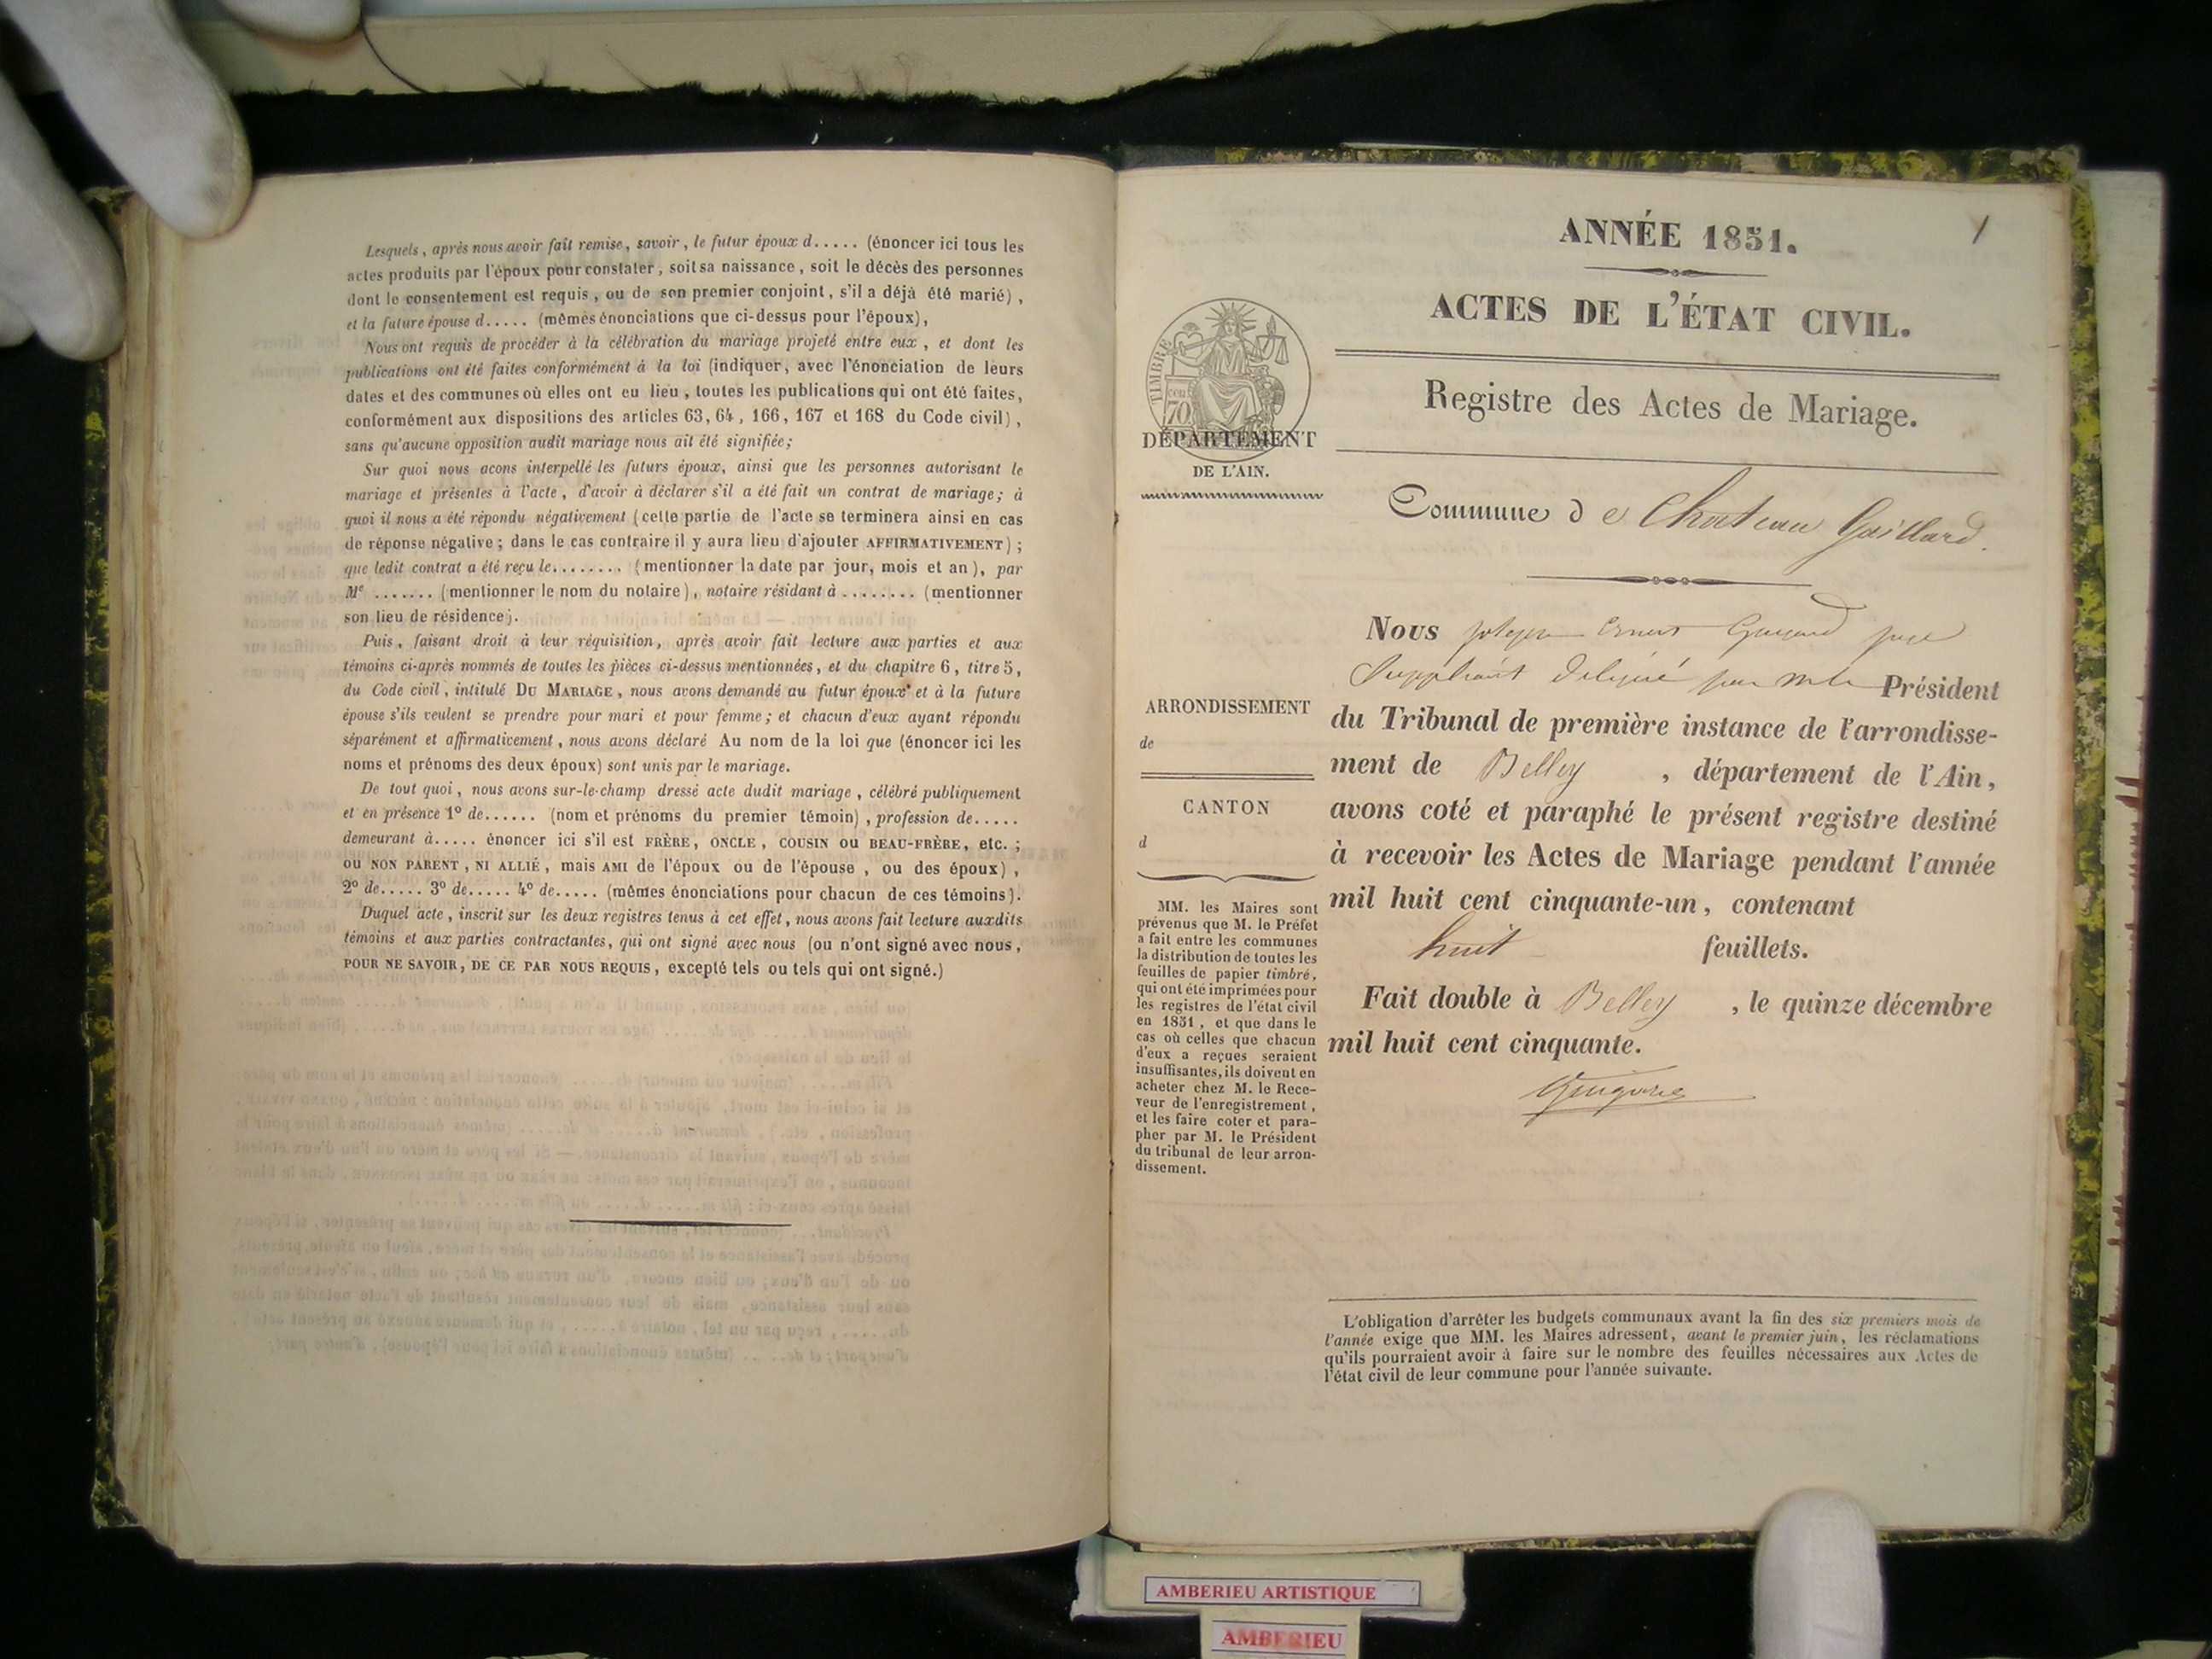 Lesquels, après nous avoir fait remise, savoir, le futur époux d..... (énoncer ici tous les
actes produits par l'époux pour constater, soit sa naissance, soit le décès des personnes
dont le consentement est requis, ou de son premier conjoint, s'il a déjà été marié),
et la future épouse d..... (mêmes énonciations que ci-dessus pour l'époux),
Nous ont requis de procéder à la célébration du mariage projeté entre eux, et dont les
publications ont été faites conformément à la loi (indiquer, avec l'énonciation de leurs
dates et des communes où elles ont eu lieu, toutes les publications qui ont été faites,
conformément aux dispositions des articles 63, 64, 166, 167 et 168 du Code civil),
sans qu'aucune opposition audit mariage nous ait été signifiée;
Sur quoi nous avons interpellé les futurs époux, ainsi que les personnes autorisant le
mariage et présentes à l'acte, d'avoir à déclarer s'il a été fait un contrat de mariage; à
quoi il nous a été répondu négativement (cette partie de l'acte se terminera ainsi en cas
de réponse négative; dans le cas contraire il y aura lieu d'ajouter AFFIRMATIVEMENT);
que ledit contrat a été reçu le........ (mentionner la date par jour, mois et an), par
Me ....... (mentionner le nom du notaire), notaire résidant à ........ (mentionner
son lieu de résidence).
Puis, faisant droit à leur réquisition, après avoir fait lecture aux parties et aux
témoins ci-après nommés de toutes les pièces ci-dessus mentionnées, et du chapitre 6, titre 5,
du Code civil, intitulé DU MARIAGE, nous avons demandé au futur époux et à la future
épouse s'ils veulent se prendre pour mari et pour femme; et chacun d'eux ayant répondu
séparément et affirmativement, nous avons déclaré Au nom de la loi que (énoncer ici les
noms et prénoms des deux époux) sont unis par le mariage.
De tout quoi, nous avons sur-le-champ dressé acte dudit mariage, célébré publiquement
et en présence 1º de...... (nom et prénoms du premier témoin), profession de.....
demeurant à..... énoncer ici s'il est FRÈRE, ONCLE, COUSIN ou BEAU-FRÈRE, etc.;
ou NON PARENT, NI ALLIÉ, mais AMI de l'époux ou de l'épouse, ou des époux),
2º de..... 3º de..... 4º de..... (mêmes énonciations pour chacun de ces témoins).
Duquel acte, inscrit sur les deux registres tenus à cet effet, nous avons fait lecture auxdits
témoins et aux parties contractantes, qui ont signé avec nous (ou n'ont signé avec nous,
POUR NE SAVOIR, DE CE PAR NOUS REQUIS, excepté tels ou tels qui ont signé.)
1
ANNÉE 1851.
ACTES DE L'ÉTAT CIVIL.
Registre des Actes de Mariage.
TIMBRE
70
DÉPARTEMENT
DE L'AIN.
Commune de Chateau Gaillard.
Nous juge
Suppléant délégué par Mr le Président
du Tribunal de première instance de l'arrondisse-
ment de Belley , département de l'Ain,
avons coté et paraphé le présent registre destiné
à recevoir les Actes de Mariage pendant l'année
mil huit cent cinquante-un, contenant
huit feuillets.
Fait double à Belley , le quinze décembre
mil huit cent cinquante.
ARRONDISSEMENT
de
CANTON
d
MM. les Maires sont
prévenus que M. le Préfet
a fait entre les communes
la distribution de toutes les
feuilles de papier timbré,
qui ont été imprimées pour
les registres de l'état civil
en 1851, et que dans le
cas où celles que chacun
d'eux a reçues seraient
insuffisantes, ils doivent en
acheter chez M. le Rece-
veur de l'enregistrement,
et les faire coter et para-
pher par M. le Président
du tribunal de leur arron-
dissement.
L'obligation d'arrêter les budgets communaux avant la fin des six premiers mois de
l'année exige que MM. les Maires adressent, avant le premier juin, les réclamations
qu'ils pourraient avoir à faire sur le nombre des feuilles nécessaires aux Actes de
l'état civil de leur commune pour l'année suivante.
AMBERIEU ARTISTIQUE
AMBERIEU